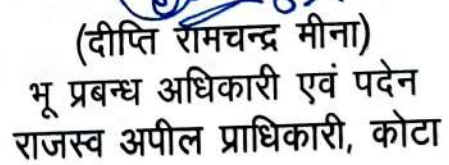 (दीप्ति रामचन्द्र मीना)
भू प्रबन्ध अधिकारी एवं पदेन
राजस्व अपील प्राधिकारी, कोटा